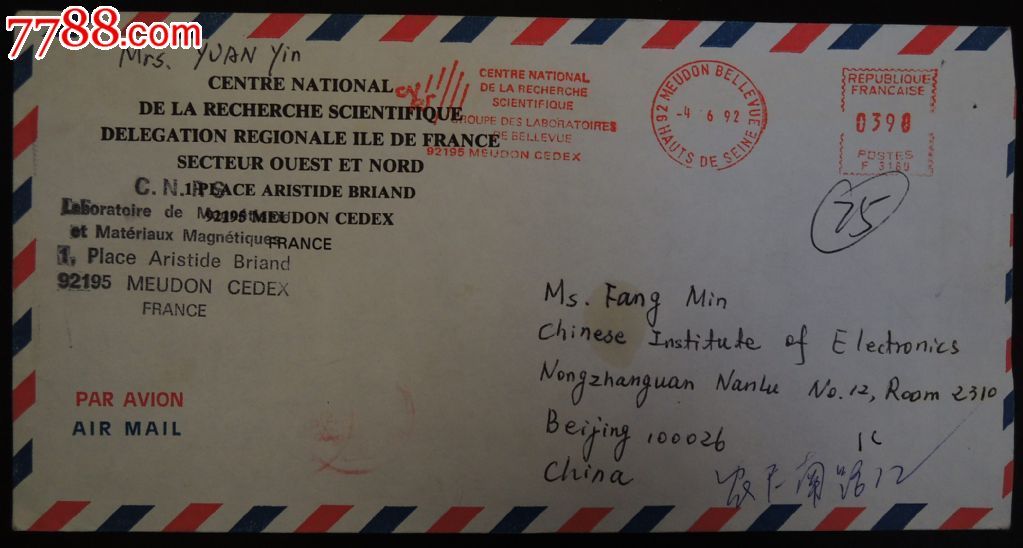 7788.com
Mrs. YUAN Yin
CENTRE NATIONAL
DE LA RECHERCHE SCIENTIFIQUE
DELEGATION REGIONALE ILE DE FRANCE
SECTEUR OUEST ET NORD
1, PLACE ARISTIDE BRIAND
92195 MEUDON CEDEX
FRANCE
C. N. R. S.
Laboratoire de
et Matériaux Magnétiques
1, Place Aristide Briand
92195 MEUDON CEDEX
FRANCE
CENTRE NATIONAL
DE LA RECHERCHE
SCIENTIFIQUE
GROUPE DES LABORATOIRES
DE BELLEVUE
92195 MEUDON CEDEX
92 MEUDON BELLEVUE
-4 6 92
HAUTS DE SEINE
REPUBLIQUE
FRANCAISE
0390
POSTES
F 3180
75
Ms. Fang Min
Chinese Institute of Electronics
Nongzhanguan Nanlu No. 12, Room 2310
Beijing 100026
China
南路12
PAR AVION
AIR MAIL